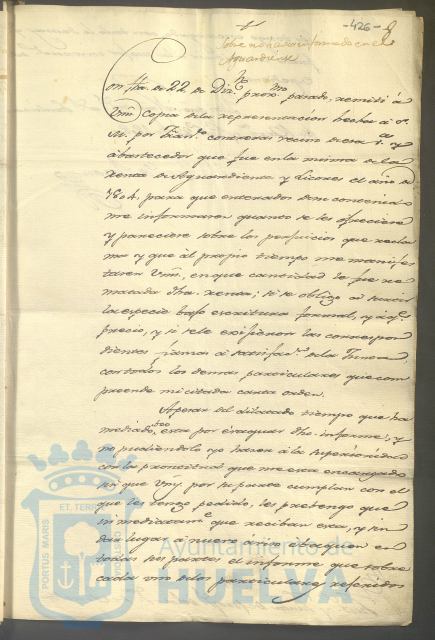 -426-
sobre no haver informado en el
Aguardiente
Con fha. de 22 de Diz.re prox.mo pasado, remití á
Vms Copia de la representacion hecha á S.
M. por Fran.co Contreras vecino de esa V.a y
abastecedor que fue en la misma de la
renta de Aguardiente y Licores el año de
1804, para que enterados de su contenido
me informaren quanto se les ofreciere
y pareciere sobre los perjuicios que recla
ma y que al propio tiempo me manifes
taren Vms, en que cantidad le fue re
matada dha. renta; si se obligó á servir
la especie bajo escritura formal, y á q.e
precio, y si se le exifieron las correspon
dientes fianzas á satisfac.n de la Junta
con todos los demas particulares que com
preende mi citada carta orden.
Apesar del dilatado tiempo que ha
mediado, esta por evaquar dho. informe; y
no pudiendolo yo hacer á la superioridad
con la prontitud que me esta encargado
sin que Vms por su parte cumplan con el
que les tengo pedido, les prevengo que
inmediatam.te que reciban esta, y sin
dar lugar á nuevo aviso evaquen en
todas sus partes el informe que sobre
cada uno de los particulares referidos
PORTUS MARIS
ET TERRAE
Ayuntamiento de
HUELVA